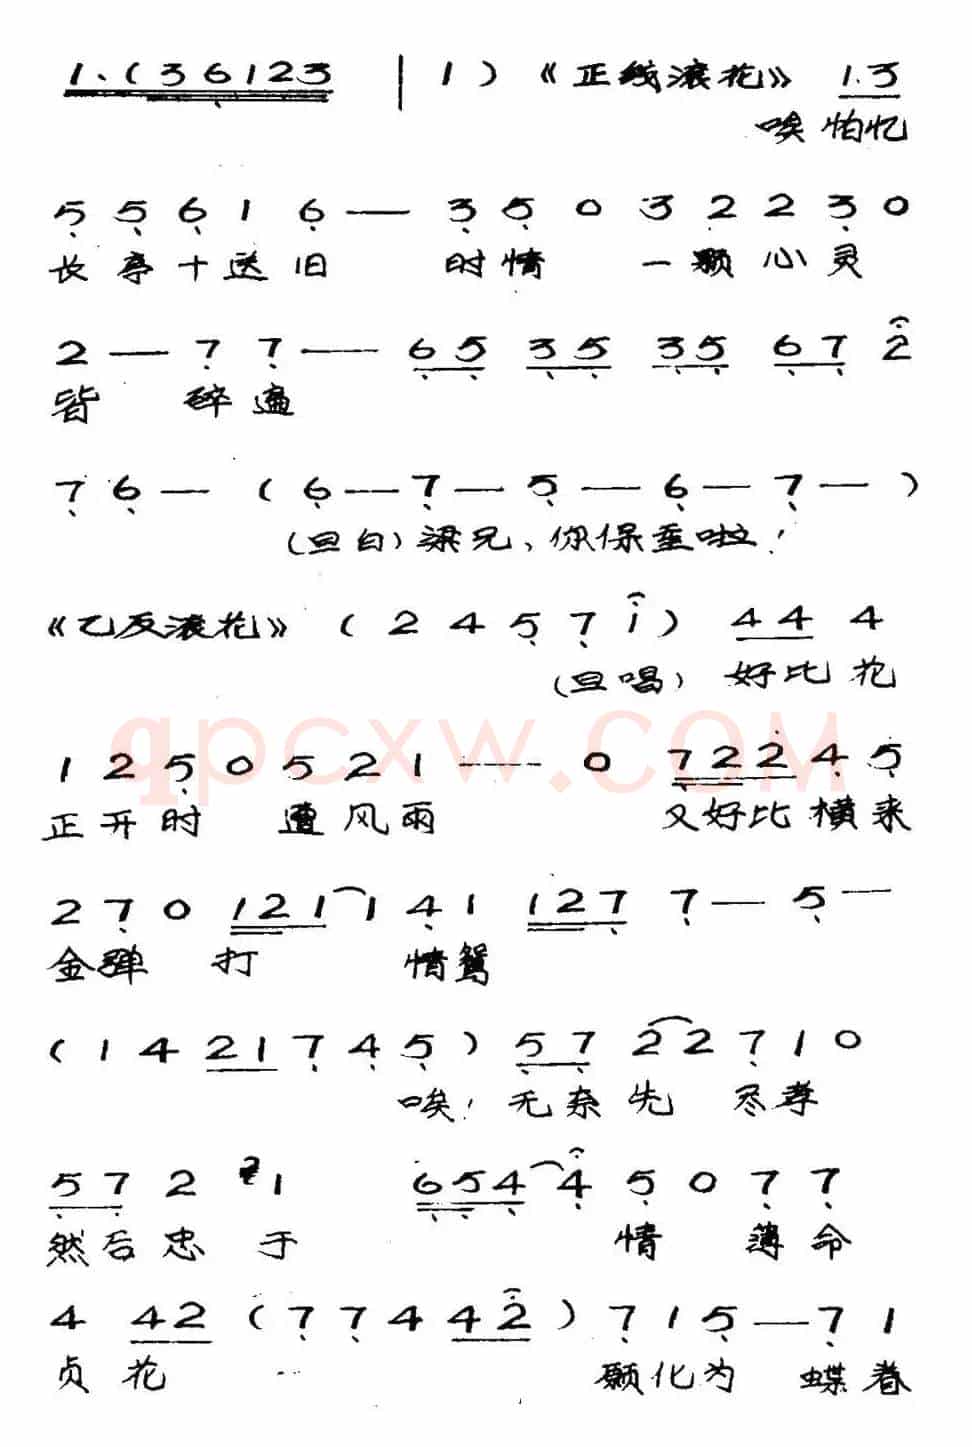 1.(36123 | 1)《正线滚花》 1.3
唉 怕忆
5 5 6 1 6 — 3 5 0 3 2 2 3 0
长亭十送旧 时情 一颗心灵
2 — 7 7 — 65 35 35 67 2
皆 碎遍
7 6 — (6 — 7 — 5 — 6 — 7 — )
(旦白)梁兄、你保重啦!
《乙反滚花》 (2 4 5 7 i) 44 4
(旦唱) 好比花
qpcxw.COM
1 2 5 0 5 2 1 — 0 722 4 5
正开时 遭风雨 又好比横来
2 7 0 121 1 4 1 127 7 — 5 —
金弹 打 情鸳
(1 4 21 7 4 5) 57 22 7 1 0
唉! 无奈先 尽孝
57 2 2 1 654 4 5 0 7 7
然后忠 于 情 薄命
4 42 (7 7 4 42) 7 1 5 — 7 1
贞 花 愿化为 蝶眷